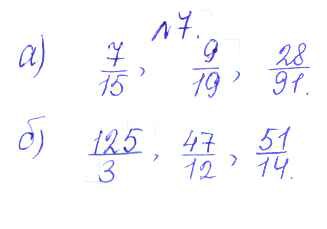 №7.
а) 7/15, 9/19, 28/91.
б) 125/3, 47/12, 51/14.